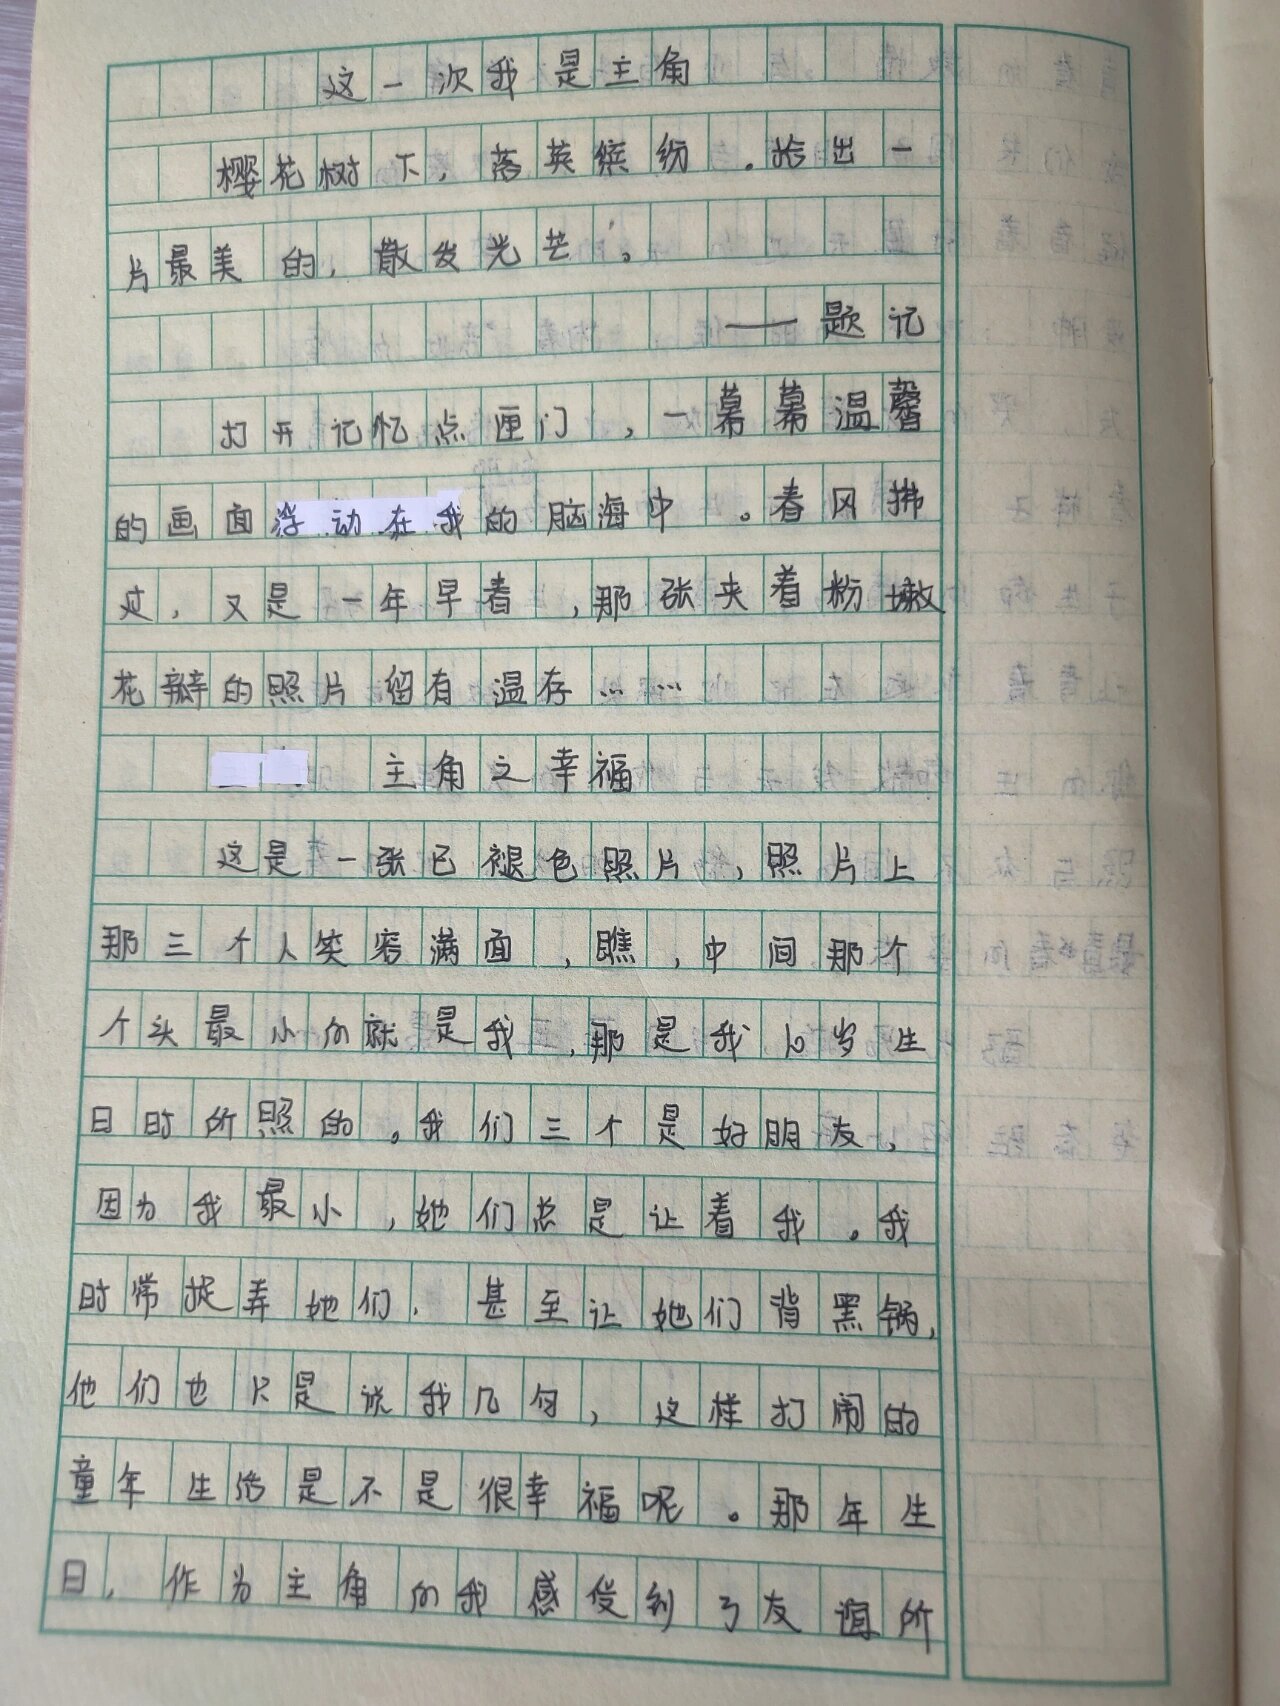 这一次我是主角
樱花树下，落英缤纷。拾出一
片最美的，散发光芒。
——题记
打开记忆点匣门，一幕幕温馨
的画面浮动在我的脑海中。春风拂
过，又是一年早春，那张夹着粉嫩
花瓣的照片留有温存……
主角之幸福
这是一张已褪色照片，照片上
那三个人笑容满面，瞧，中间那个
个头最小的就是我，那是我6岁生
日时所照的。我们三个是好朋友，
因为我最小，她们总是让着我。我
时常捉弄她们，甚至让她们背黑锅，
他们也只是说我几句，这样打闹的
童年生活是不是很幸福呢。那年生
日，作为主角的我感受到了友谊所